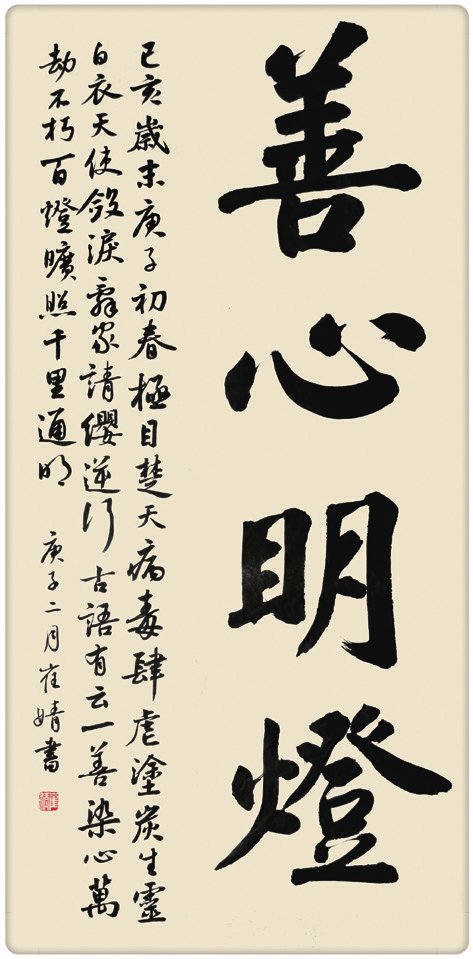 善心明燈
己亥歲末庚子初春極目楚天病毒肆虐塗炭生靈
白衣天使斂淚辭家請纓逆行古語有云一善染心萬
劫不朽百燈曠照千里通明
庚子二月崔婧書